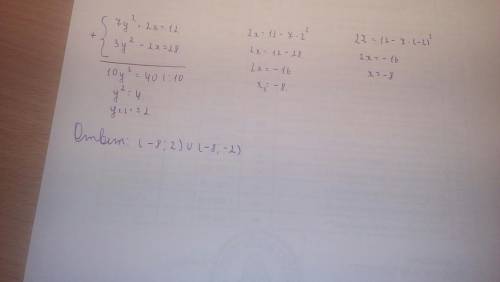 + { 7y² + 2x = 12
3y² - 2x = 28
10y² = 40 | : 10
y² = 4
y₁,₂ = ± 2
2x = 12 - 7 · 2²
2x = 12 - 28
2x = -16
x₁ = -8
2x = 12 - 7 · (-2)²
2x = -16
x = -8
Ответ: (-8; 2) ∪ (-8; -2)